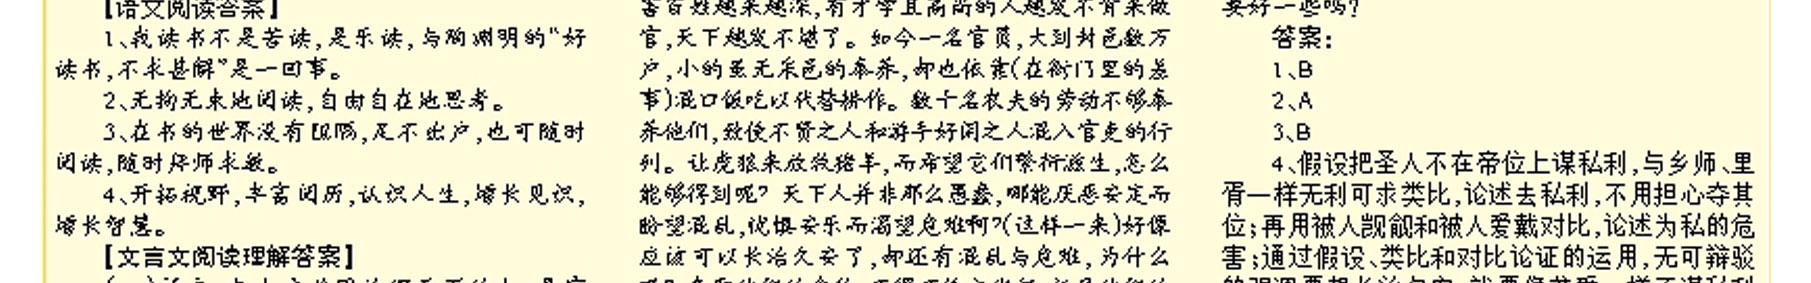 【语文阅读答案】
1、我读书不是苦读,是乐读,与陶渊明的“好
读书,不求甚解”是一回事。
2、无拘无束地阅读,自由自在地思考。
3、在书的世界没有阻隔,足不出户,也可随时
阅读,随时拜师求教。
4、开拓视野,丰富阅历,认识人生,增长见识,
增长智慧。
【文言文阅读理解答案】
害百姓越来越深,有才学且高尚的人越发不肯来做
官,天下越发不堪了。如今一名官员,大到封邑数万
户,小的虽无采邑的奉养,却也依靠(在衙门里的差
事)混口饭吃以代替耕作。数十名农夫的劳动不够奉
养他们,致使不贤之人和游手好闲之人混入官吏的行
列。让虎狼来放牧猪羊,而希望它们繁衍滋生,怎么
能够得到呢?天下人并非那么愚蠢,哪能厌恶安定而
盼望混乱,忧惧安乐而渴望危难啊?(这样一来)好像
应该可以长治久安了,却还有混乱与危难,为什么
要好一些吗?
答案:
1、B
2、A
3、B
4、假设把圣人不在帝位上谋私利,与乡师、里
胥一样无利可求类比,论述去私利,不用担心夺其
位;再用被人觊觎和被人爱戴对比,论述为私的危
害;通过假设、类比和对比论证的运用,无可辩驳